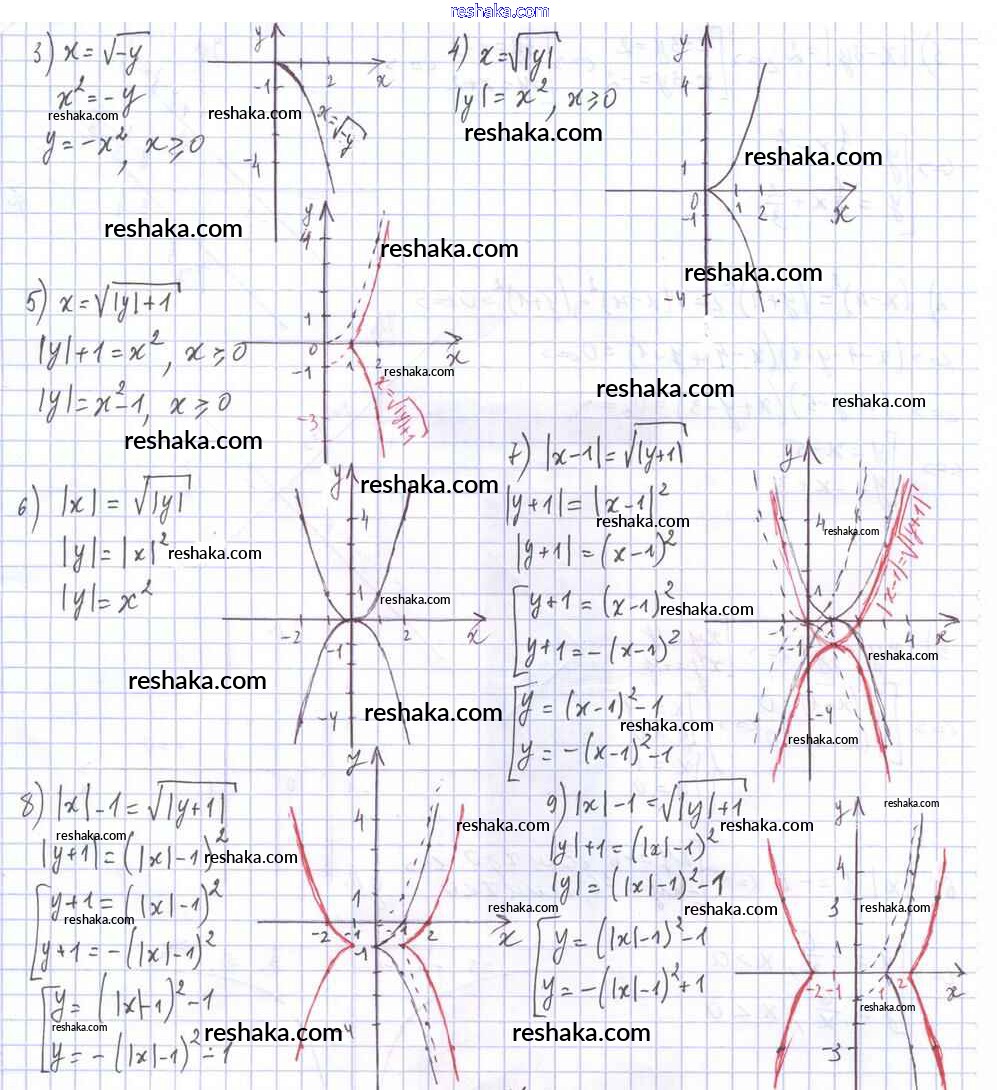 reshaka.com
3) x = √-y
x² = -y
reshaka.com
y = -x², x ⩾ 0
reshaka.com
y
2
x
-1
reshaka.com
x = √-y
-4
4) x = √|y|
|y| = x², x ⩾ 0
reshaka.com
y
4
reshaka.com
1
0
1
2
x
-1
reshaka.com
-4
5) x = √|y|+1
|y|+1 = x², x ⩾ 0
|y| = x²-1, x ⩾ 0
reshaka.com
y
4
reshaka.com
1
0
1
2
x
-1
reshaka.com
-3
x = √|y|+1
reshaka.com
reshaka.com
6) |x| = √|y|
|y| = |x|²
reshaka.com
|y| = x²
reshaka.com
y
reshaka.com
4
1
reshaka.com
-2
0
2
x
-1
-4
reshaka.com
7) |x-1| = √|y+1|
|y+1| = |x-1|²
reshaka.com
|y+1| = (x-1)²
y+1 = (x-1)²
reshaka.com
y+1 = -(x-1)²
y = (x-1)²-1
reshaka.com
y = -(x-1)²-1
y
4
reshaka.com
|x-1| = √|y+1|
1
-1
1
4
x
-1
reshaka.com
-4
reshaka.com
8) |x|-1 = √|y+1|
reshaka.com
|y+1| = (|x|-1)²
reshaka.com
y+1 = (|x|-1)²
reshaka.com
y+1 = -(|x|-1)²
y = (|x|-1)²-1
reshaka.com
y = -(|x|-1)²-1
reshaka.com
y
4
reshaka.com
1
reshaka.com
-2
-1
1
2
x
-1
-4
9) |x|-1 = √|y|+1
reshaka.com
|y|+1 = (|x|-1)²
|y| = (|x|-1)²-1
reshaka.com
y = (|x|-1)²-1
y = -(|x|-1)²+1
reshaka.com
y
reshaka.com
4
3
reshaka.com
1
-2
-1
1
2
x
reshaka.com
-3